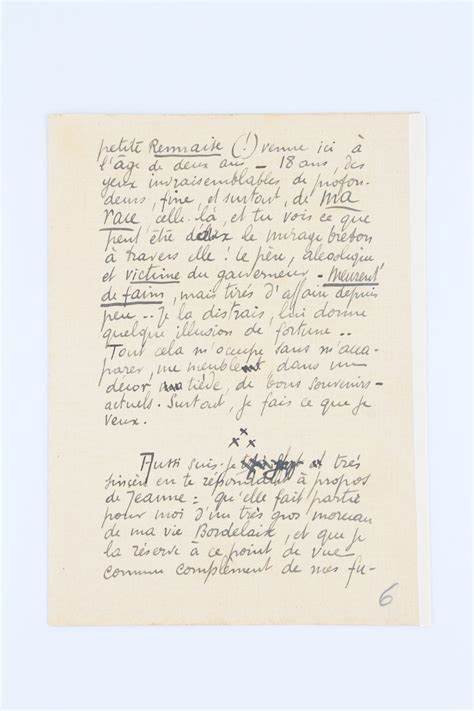 petite Rennaise (!) venue ici à
l'âge de deux ans _ 18 ans, des
yeux invraisemblables de profon-
deurs, fine, et surtout, de ma
race, celle-là, et tu vois ce que
peut être le mirage breton
à travers elle! le père, alcoolique
et victime du gouverneur - Meurent
de faim, mais tirés d'affaire depuis
peu .. Je la distrais, lui donne
quelque illusion de fortune ..
Tout cela m'occupe sans m'acca-
parer, me meublent, dans un
décor, de bons souvenirs-
actuels. Surtout, je fais ce que je
veux.
x
x x x
Aussi suis-je très
sincère en te répondant à propos
de Jeanne = qu'elle fait partie
pour moi d'un très gros morceau
de ma vie Bordelaise, et que je
la réserve à ce point de vue-
comme complément de mes fu-
6